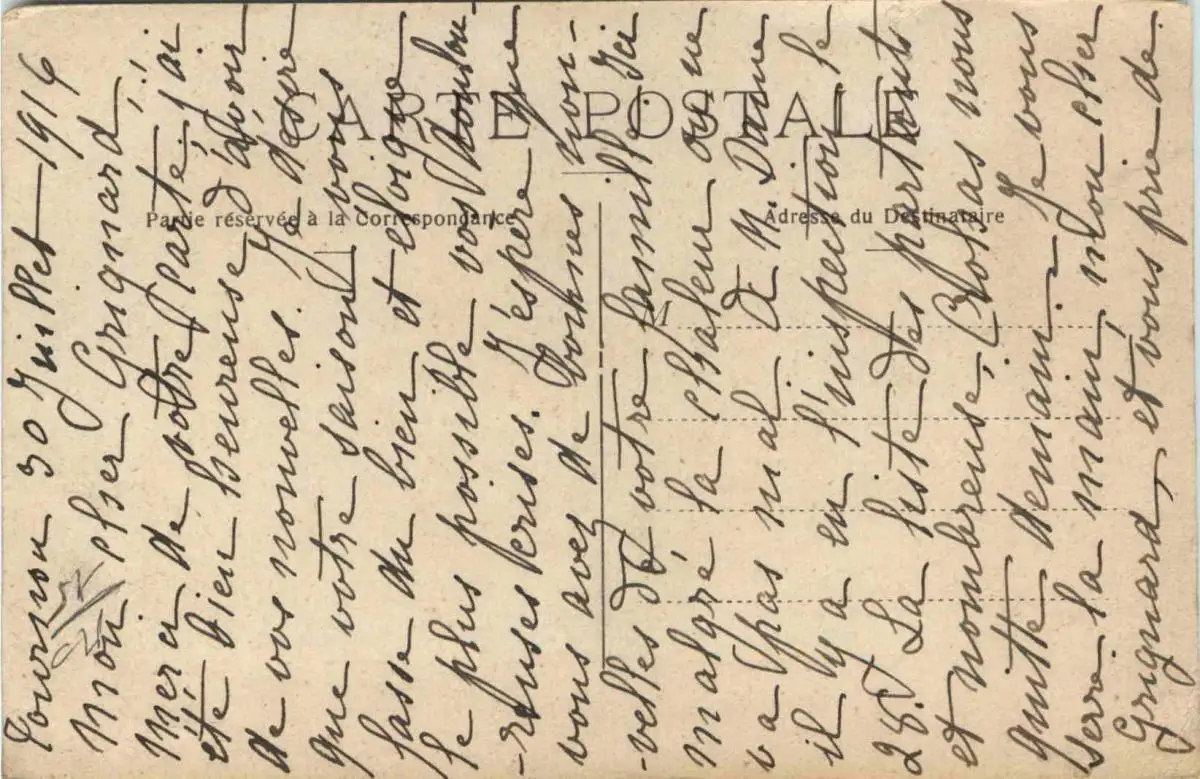 CARTE POSTALE
Partie réservée à la Correspondance
Adresse du Destinataire
Tournon 30 Juillet 1916
Mon cher Grignard!!
Merci de votre Carte, j'ai
été bien heureuse d'avoir
de vos nouvelles. Je désire
que votre saison vous
fasse du bien et éloigne
le plus possible vos doulou-
-reuses crises. J'espère que
vous avez de bonnes nou-
-velles de votre famille. Ici
malgré la chaleur on ne
va pas mal. A N. Dame
il y a eu l'inspection le
28. La liste des partants
est nombreuse,
quitte demain. Je vous
serre la main, mon cher
Grignard, et vous prie de